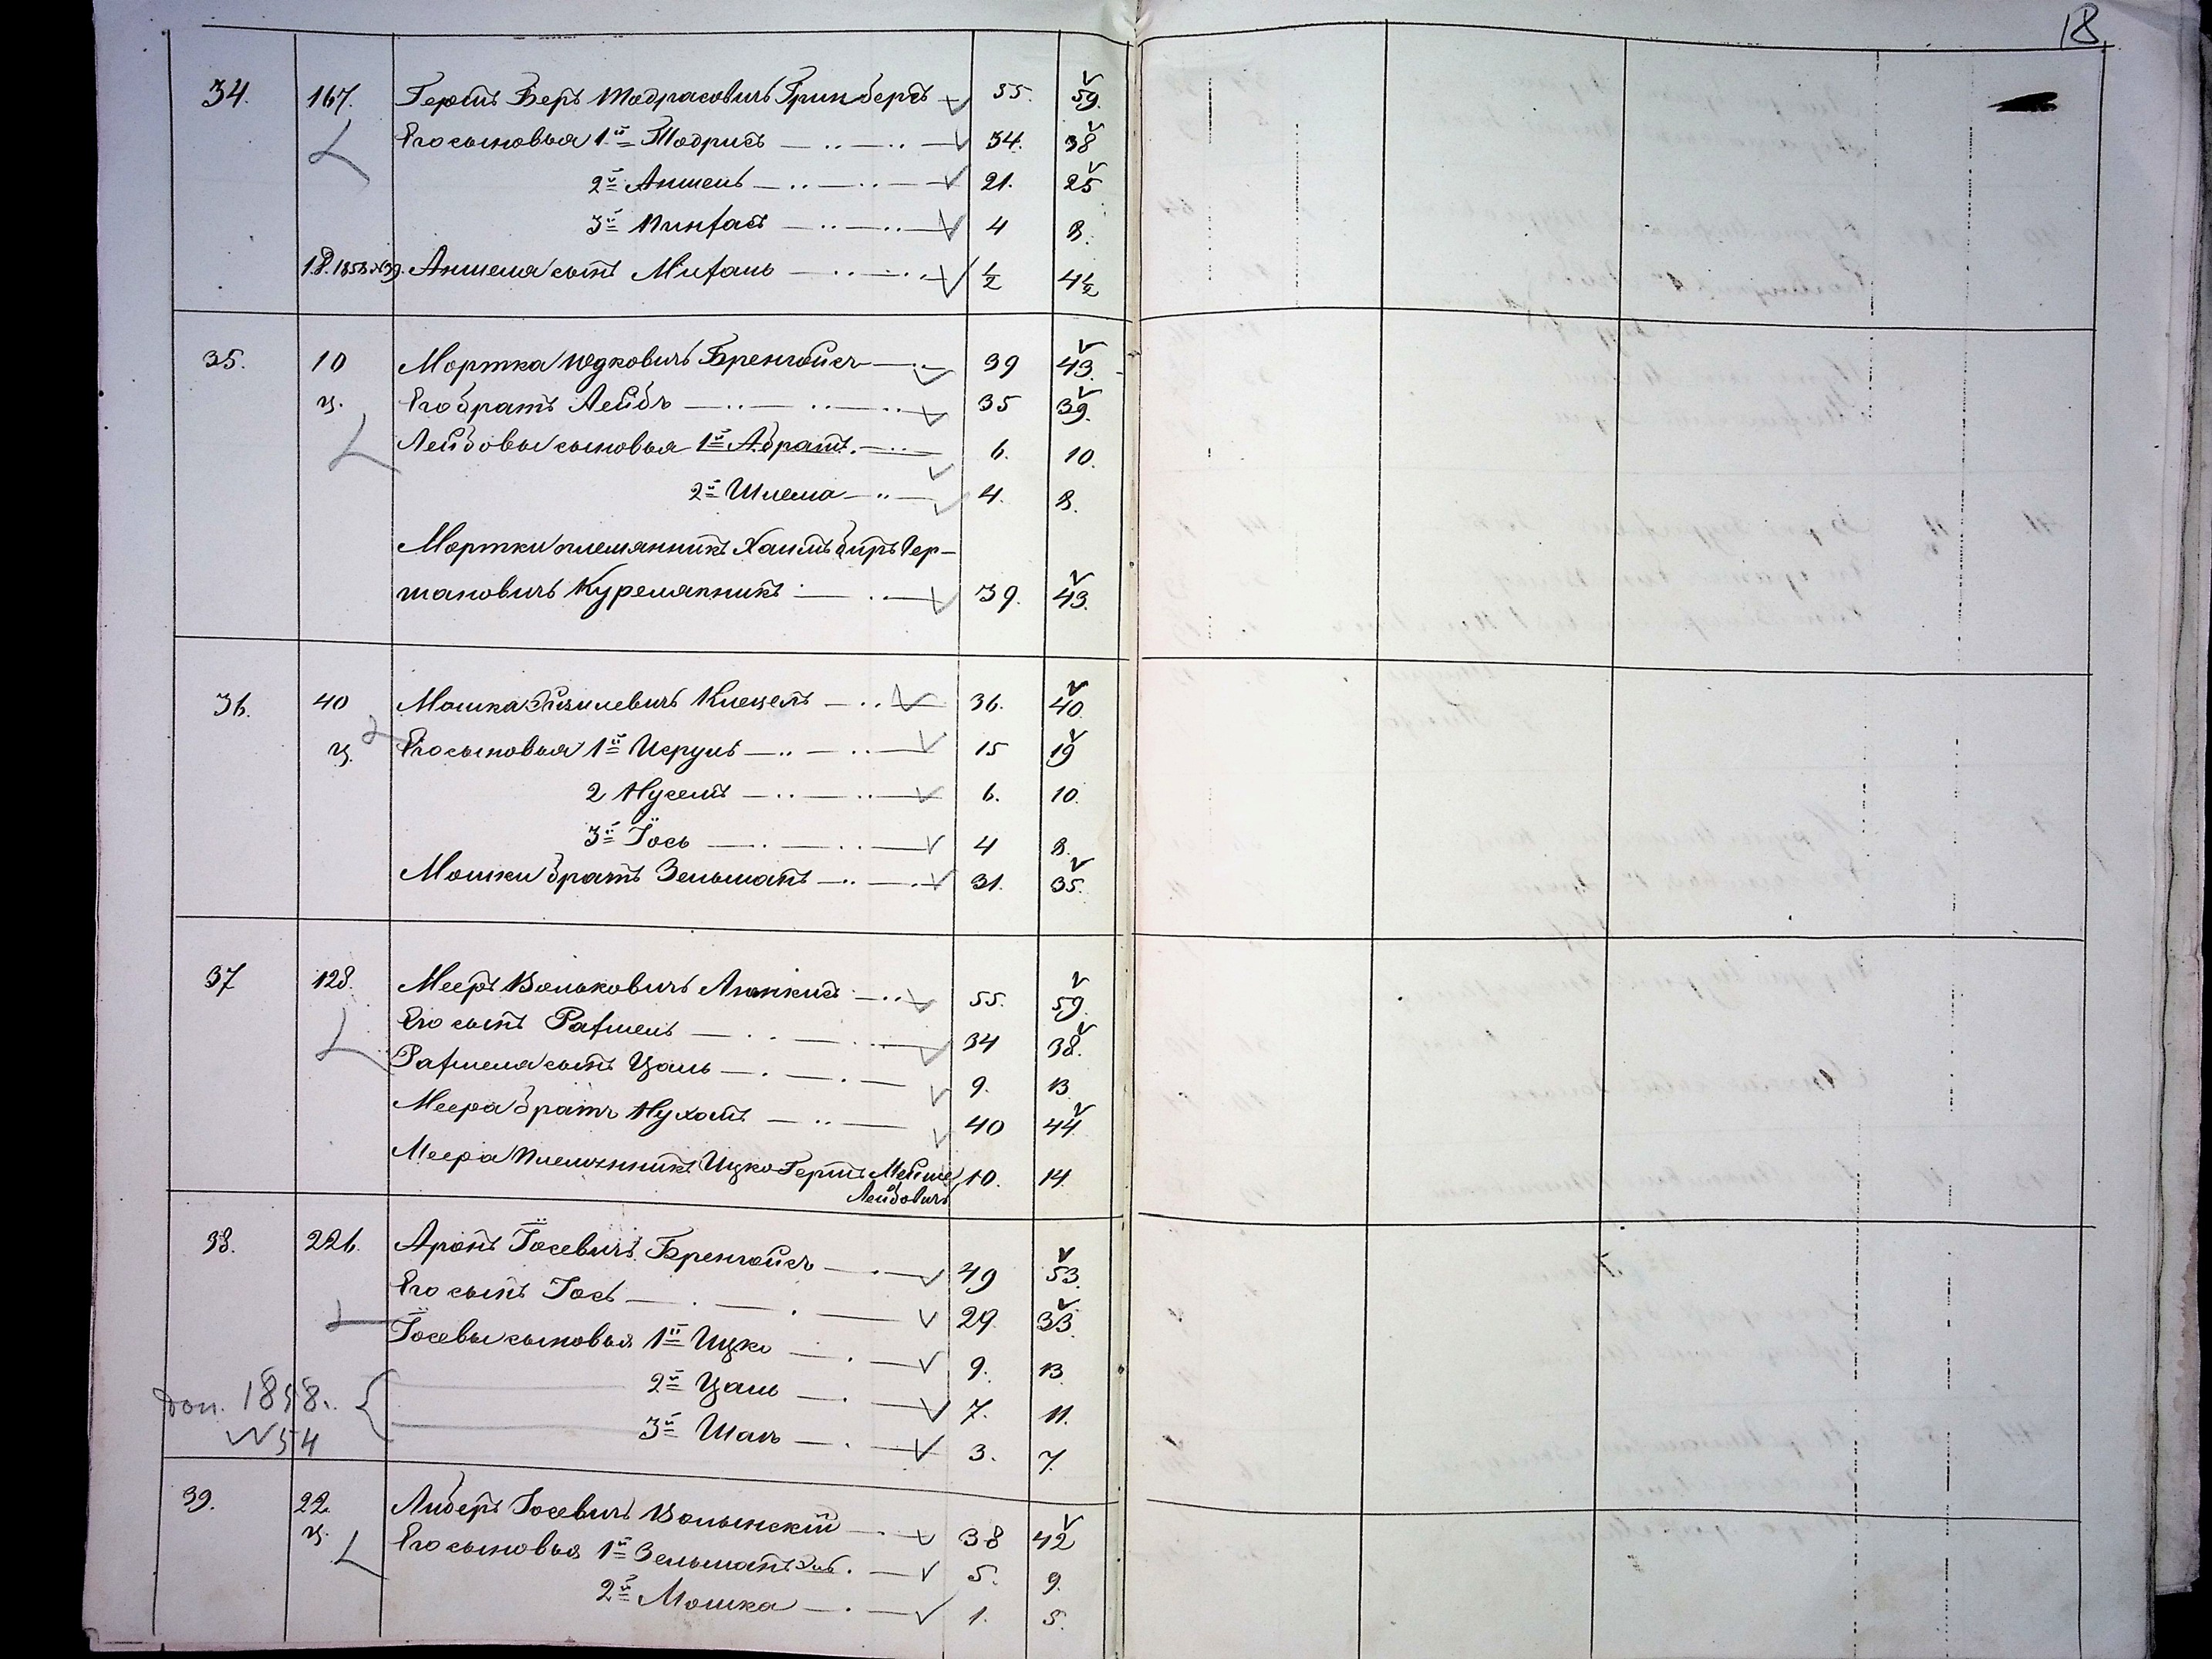 18.
34. 167. Гершъ Беръ Тодрасовичъ Гринбергъ 55. 59.
Его сыновья 1й Тодрисъ 34. 38
2й Аншель 21. 25
3й Пинхасъ 4 8.
Аншеля сынъ Михаль ½ 4½
35. 10 Мортка Юдковичъ Бренгойсъ 39 43.
ц. Его братъ Лейбъ 35 39.
Лейбовы сыновья 1й Абрамъ. 6. 10.
2й Шлема 4. 8.
Мортки племянникъ Хаимъ Биръ Гер-
шановичъ 39. 43.
36. 40 Мошка 36. 40.
ц. Его сыновья 1й Исруль 15 19
2 Нусемъ 6. 10.
3й Іось 4 8.
Мошки братъ Зельманъ 31. 35.
37 128. Мееръ Вольковичъ 55. 59.
Его сынъ Рахмель 34 38.
Рахмеля сынъ Цаль 9. 13
Меера братъ Нухамъ 40 44
Меера племянникъ Ицко Гершъ 10. 14.
Лейбовичъ
38. 226. Аронъ Іосевичъ Бренгойсъ 49 53.
Его сынъ Іось 29 33.
Іосевы сыновья 1й Ицко 9. 13
2й Цаль 7. 11.
доп. 1858.
N 54
3й 3. 7.
39. 22 Либеръ Іосевичъ Волынскій 38 42
ц. Его сыновья 1й Зельманъ 5. 9.
2й Мошка 1. 5.